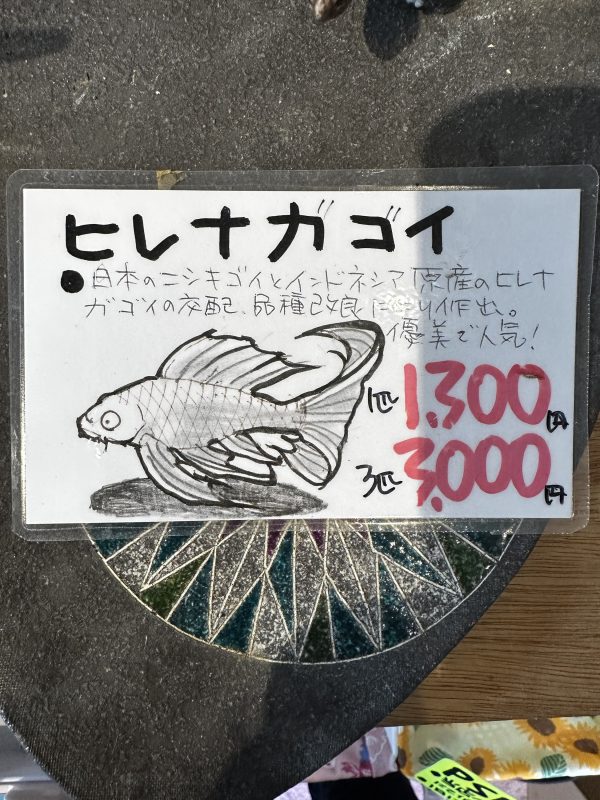 ヒレナガゴイ
●日本のニシキゴイとインドネシア原産のヒレナ
ガゴイの交配、品種改良により作出。
優美で人気!
1匹 1,300円
3匹 3,000円